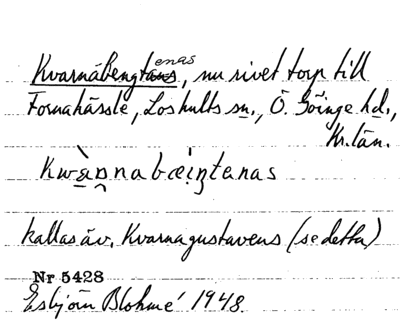 Kvarnåbengtenas, nu rivet torp till
Fornahässle, Loshults sn., Ö. Göinge hd.,
Kr. län.
Kwàɲnabæiŋtenas
kallas äv. Kvarnagustavens (se detta)
Nr 5428
Esbjörn Blohmé 1948.